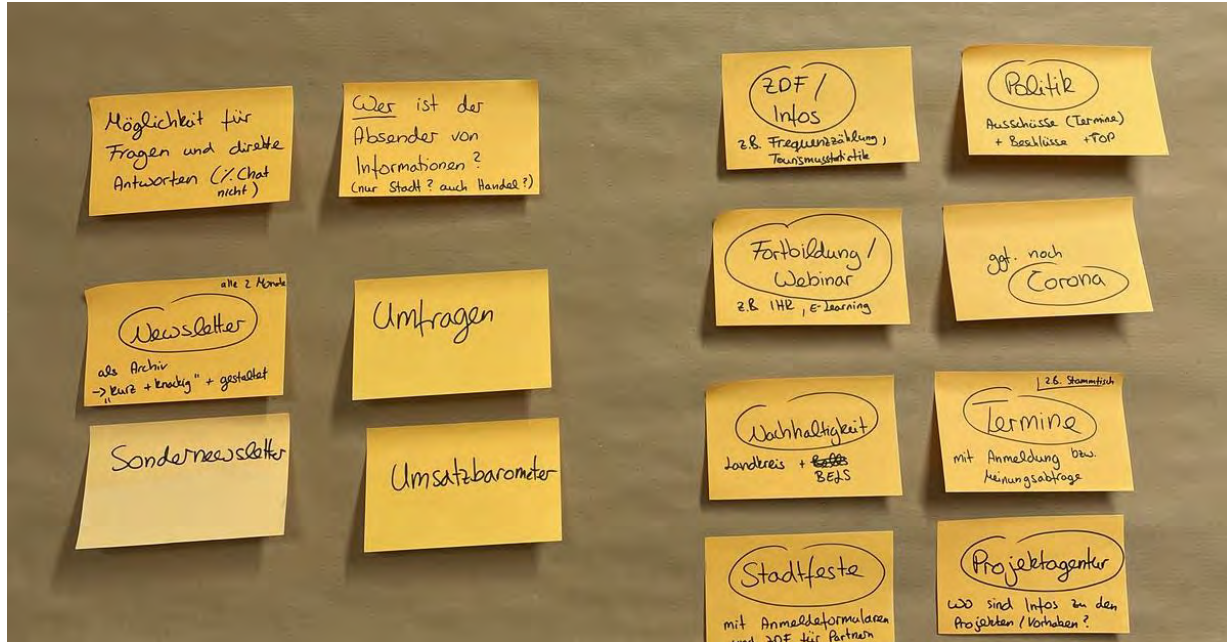 Möglichkeit für
Fragen und direkte
Antworten (./. Chat
nicht)
Wer ist der
Absender von
Informationen?
(nur Stadt? auch Handel?)
alle 2 Monate
Newsletter
als Archiv
-> "kurz + knackig" + gestaltet
Umfragen
Sondernewsletter
Umsatzbarometer
ZDF /
Infos
z.B. Frequenzzählung,
Tourismusstatistik
Politik
Ausschüsse (Termine)
+ Beschlüsse + TOP
Fortbildung /
Webinar
z.B. IHK, E-Learning
ggf. noch
Corona
Nachhaltigkeit
Landkreis +
BELS
z.B. Stammtisch
Termine
mit Anmeldung bzw.
Meinungsabfrage
Stadtfeste
mit Anmeldeformularen
und ZDF für Partner
Projektagentur
Wo sind Infos zu den
Projekten / Vorhaben?